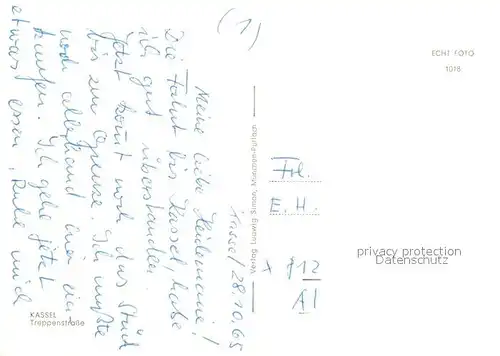 (1)
Kassel 28.10.65
Meine liebe Heidemarie!
Die Fahrt bis Kassel habe
ich gut überstanden.
Jetzt kommt noch das Stück
bis zur Grenze. Ich mußte
noch allerhand hier ein
kaufen. Ich gehe jetzt
etwas essen. Ruhe mich
Verlag Ludwig Simon, München-Pullach
ECHT FOTO
1018
Frl.
E. H.
x 912
A1
privacy protection
Datenschutz
KASSEL
Treppenstraße